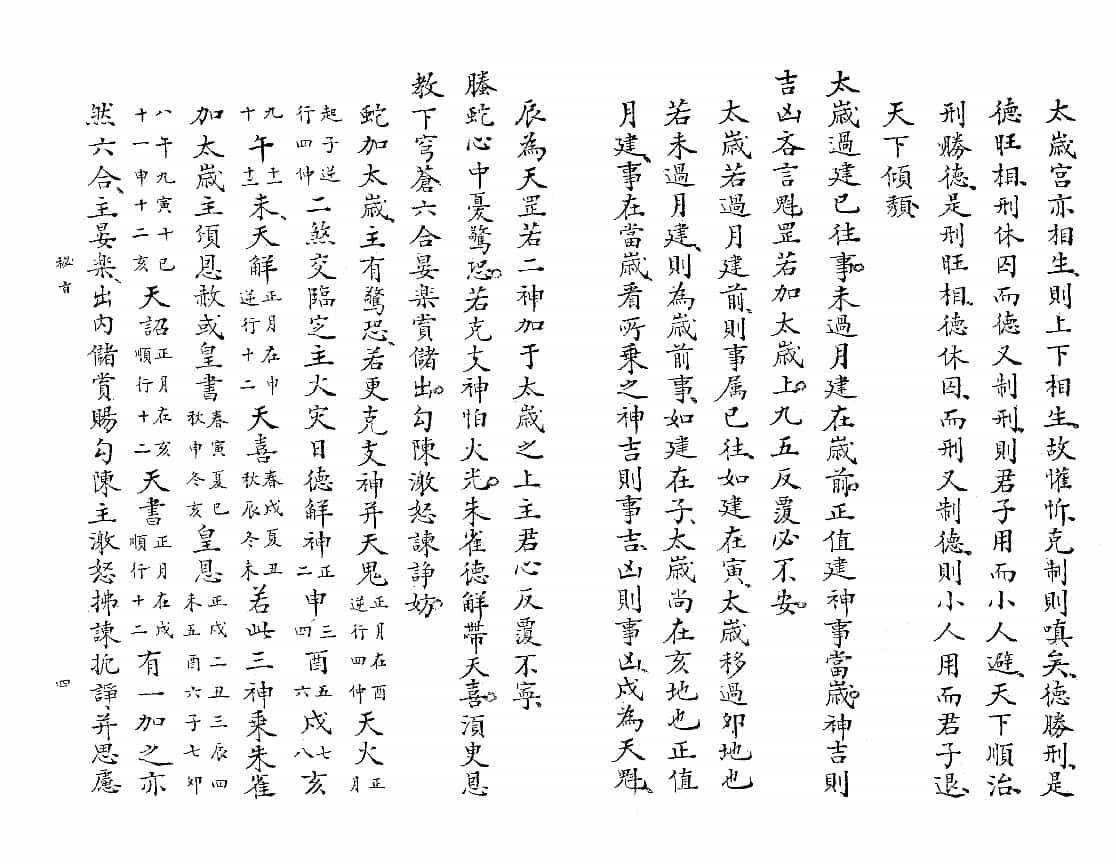 太歲宮亦相生則上下相生故懽忻克制則嗔矣德勝刑是
德旺相刑休囚而德又制刑則君子用而小人避天下順治
刑勝德是刑旺相德休囚而刑又制德則小人用而君子退
天下傾頽
太歲過建已往事未過月建在歲前正值建神事當歲神吉則
吉凶吝言魁罡若加太歲上九五反覆必不安
太歲若過月建前則事属已往如建在寅太歲移過卯地也
若未過月建則為歲前事如建在子太歲尚在亥地也正值
月建事在當歲看所乘之神吉則事吉凶則事凶戌為天魁
辰為天罡若二神加于太歲之上主君心反覆不寧
螣蛇心中憂驚恐若克支神怕火光朱雀德解帶天喜須更恩
教下穹蒼六合晏楽賞儲出勾陳激怒諫諍妨
蛇加太歲主有驚恐若更克支神并天鬼正月在酉逆行四仲天火正月
起子逆行四仲二煞交臨定主火灾日德解神正二申三四酉五六戌七八亥
九十午十一十二未天解正月在申逆行十二天喜春戌夏丑秋辰冬未若此三神乘朱雀
加太歲主須恩赦或皇書春寅夏巳秋申冬亥皇恩正戌二丑三辰四未五酉六子七卯
八午九寅十巳十一申十二亥天詔正月在亥順行十二天書正月在戌順行十二有一加之亦
然六合主晏楽出内儲賞賜勾陳主激怒拂諫抗諍并思慮
四